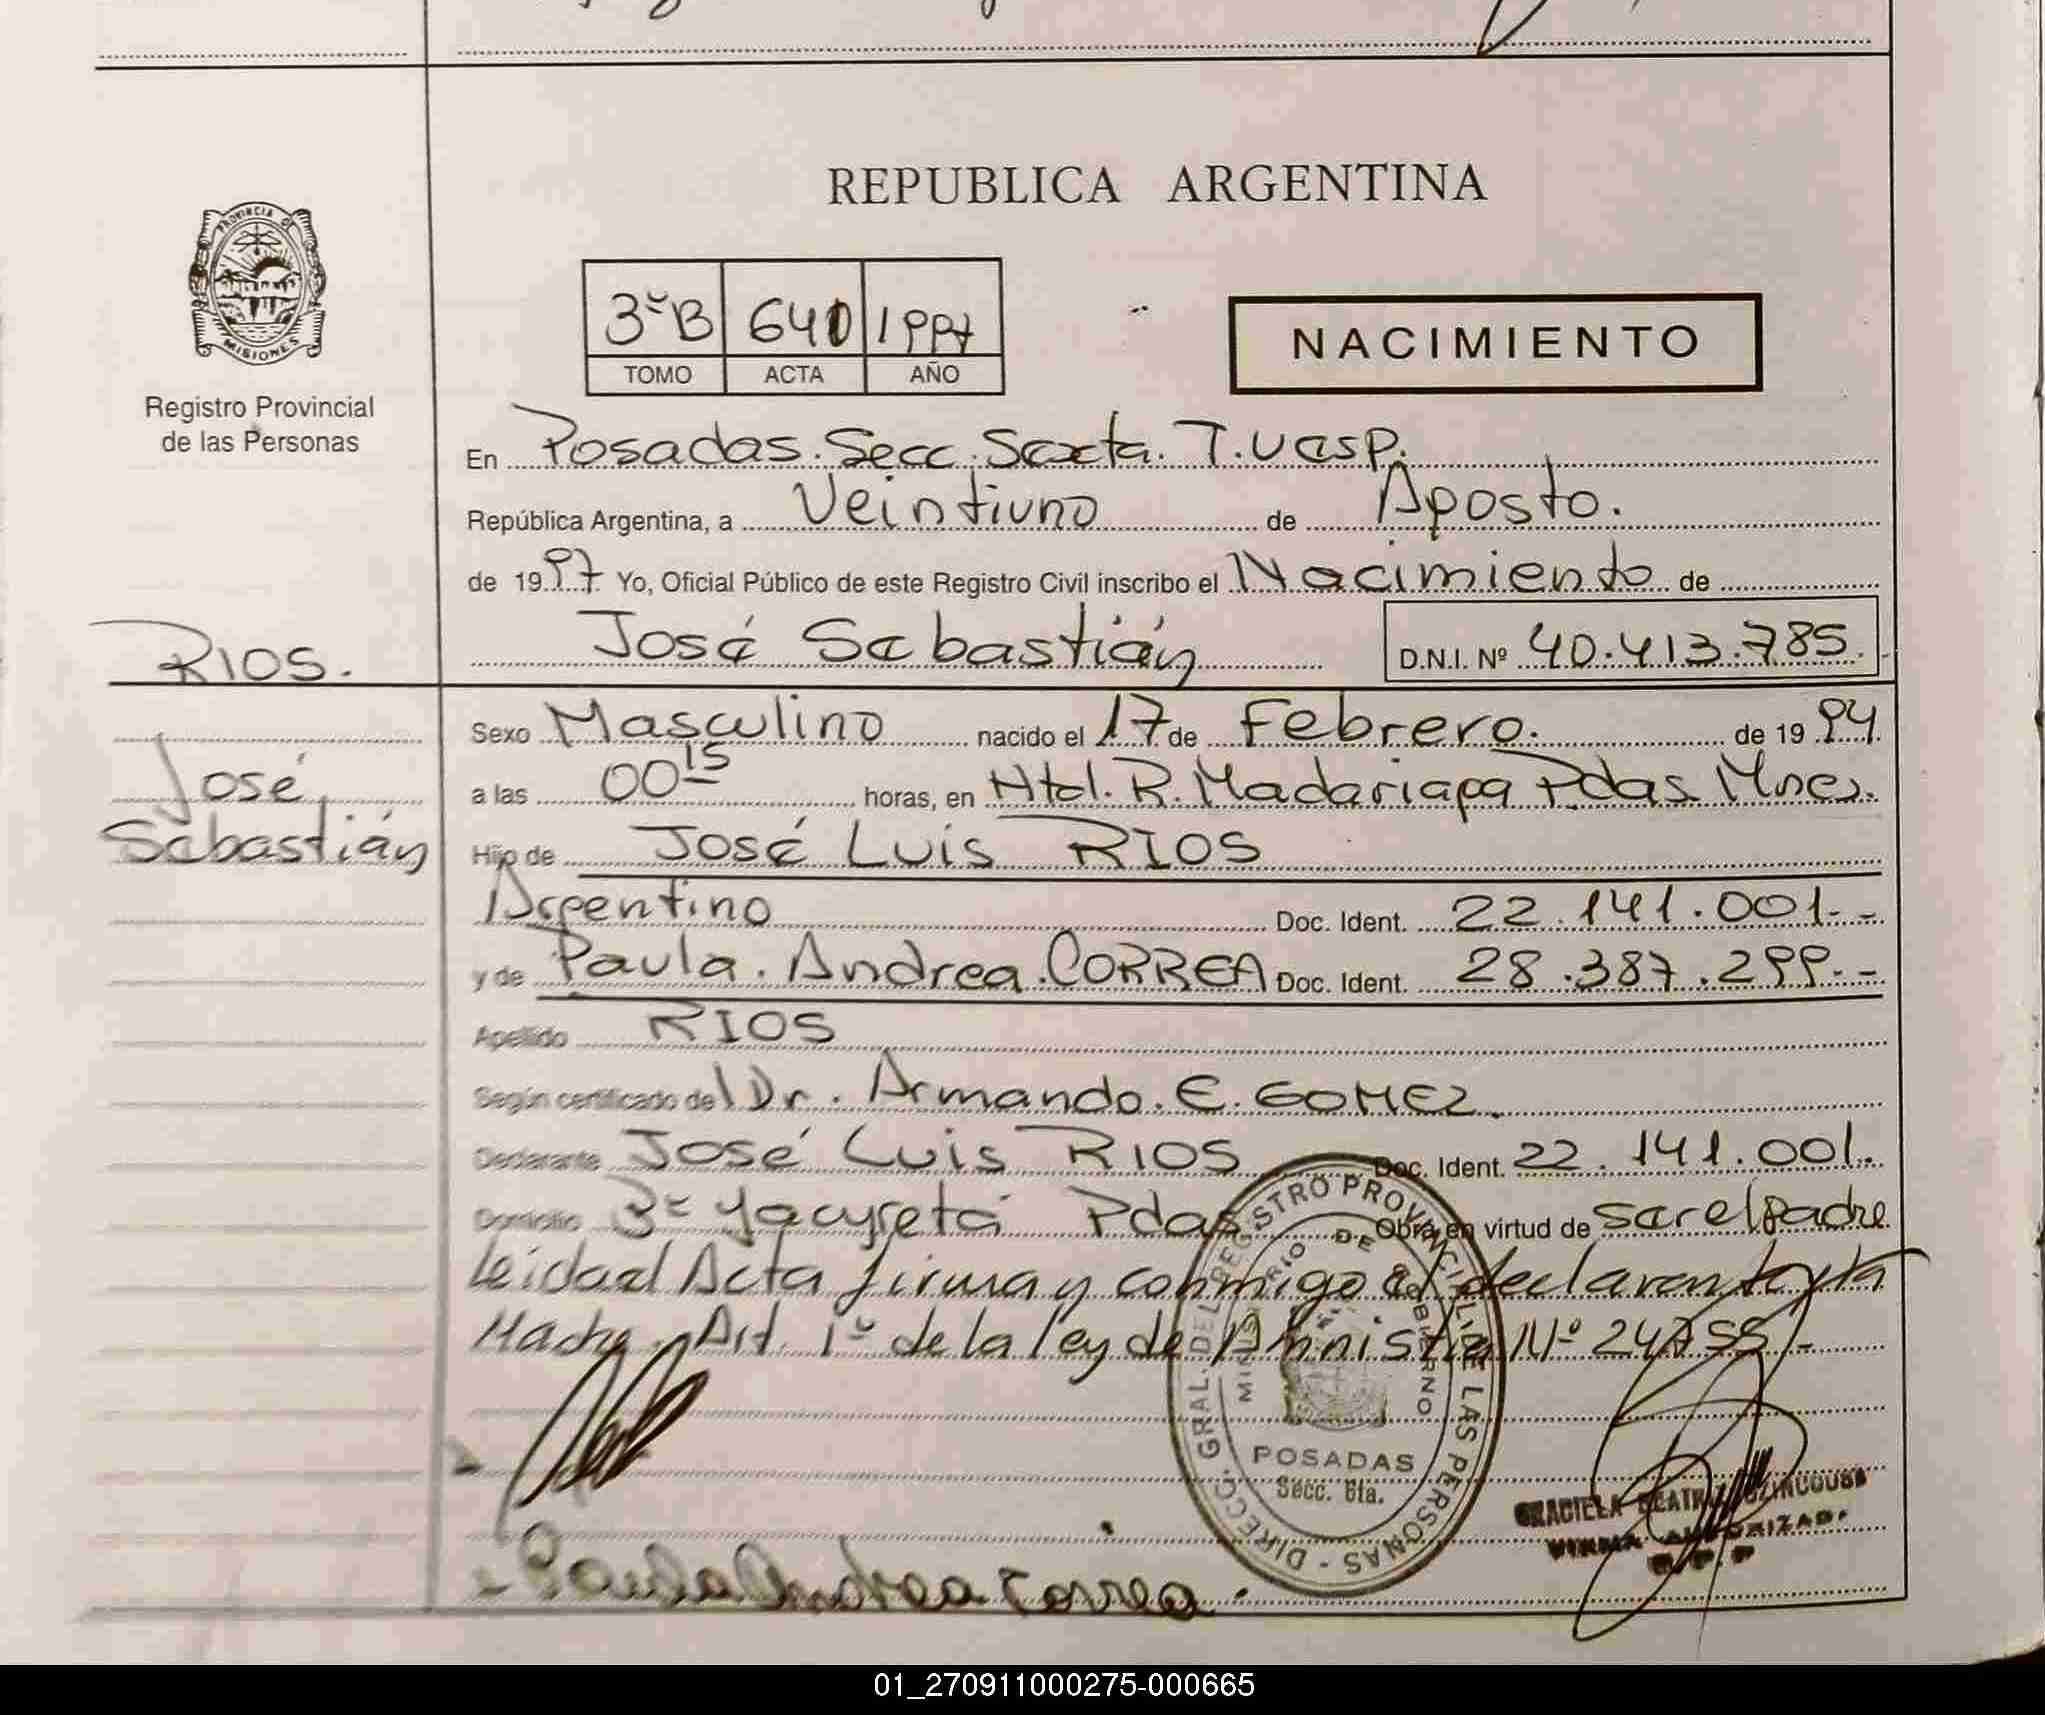 REPUBLICA ARGENTINA
PROVINCIA DE
MISIONES
Registro Provincial
de las Personas
3º B 640 1997
TOMO ACTA AÑO
NACIMIENTO
En Posadas. Secc. Sexta. T.
República Argentina, a Veintiuno de Agosto.
de 1997 Yo, Oficial Público de este Registro Civil inscribo el Nacimiento de
RIOS.
José Sebastián D.N.I. Nº 40.413.785.
Sexo Masculino nacido el 17 de Febrero. de 1994
José
Sebastián
a las 00 15 horas, en Htal. R. Madariaga Pdas Mnes.
Hijo de José Luis RIOS
Argentino Doc. Ident. 22.141.001.-
y de Paula. Andrea. CORREA Doc. Ident. 28.387.299.-
Apellido RIOS
Según certificado del Dr. Armando. E. GOMEZ.
Declarante José Luis RIOS Doc. Ident. 22.141.001.
Domicilio Bº Yacyreta Pdas Obra en virtud de ser el Padre
Leida el Acta firman conmigo el declarante y la
Madre. Art. 1º de la ley de Amnistia Nº 24755.-
DIRECC. GRAL. DEL REGISTRO PROVINCIAL DE LAS PERSONAS -
MINISTERIO DE GOBIERNO
POSADAS
Secc. 6ta.
GRACIELA BEATRIZ
FIRMA AUTORIZAD.
R.P.P
Paula Andrea Correa.
01_270911000275-000665